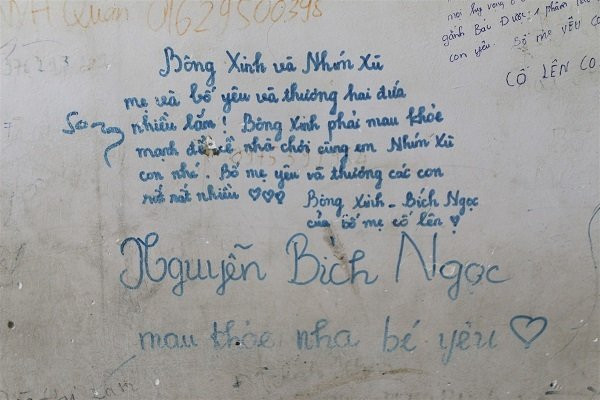 WH Quân 01629500398
Bông Xinh và Nhím Xù
mẹ và bố yêu và thương hai đứa
nhiều lắm! Bông Xinh phải mau khỏe
mạnh để về nhà chơi cùng em Nhím Xù
con nhé. Bố mẹ yêu và thương các con
rất rất nhiều ♡♡♡
Bông Xinh - Bích Ngọc
của bố mẹ cố lên ♡
Nguyễn Bích Ngọc
mau khỏe nha bé yêu ♡
con yêu. Bố mẹ yêu
CỐ LÊN CO